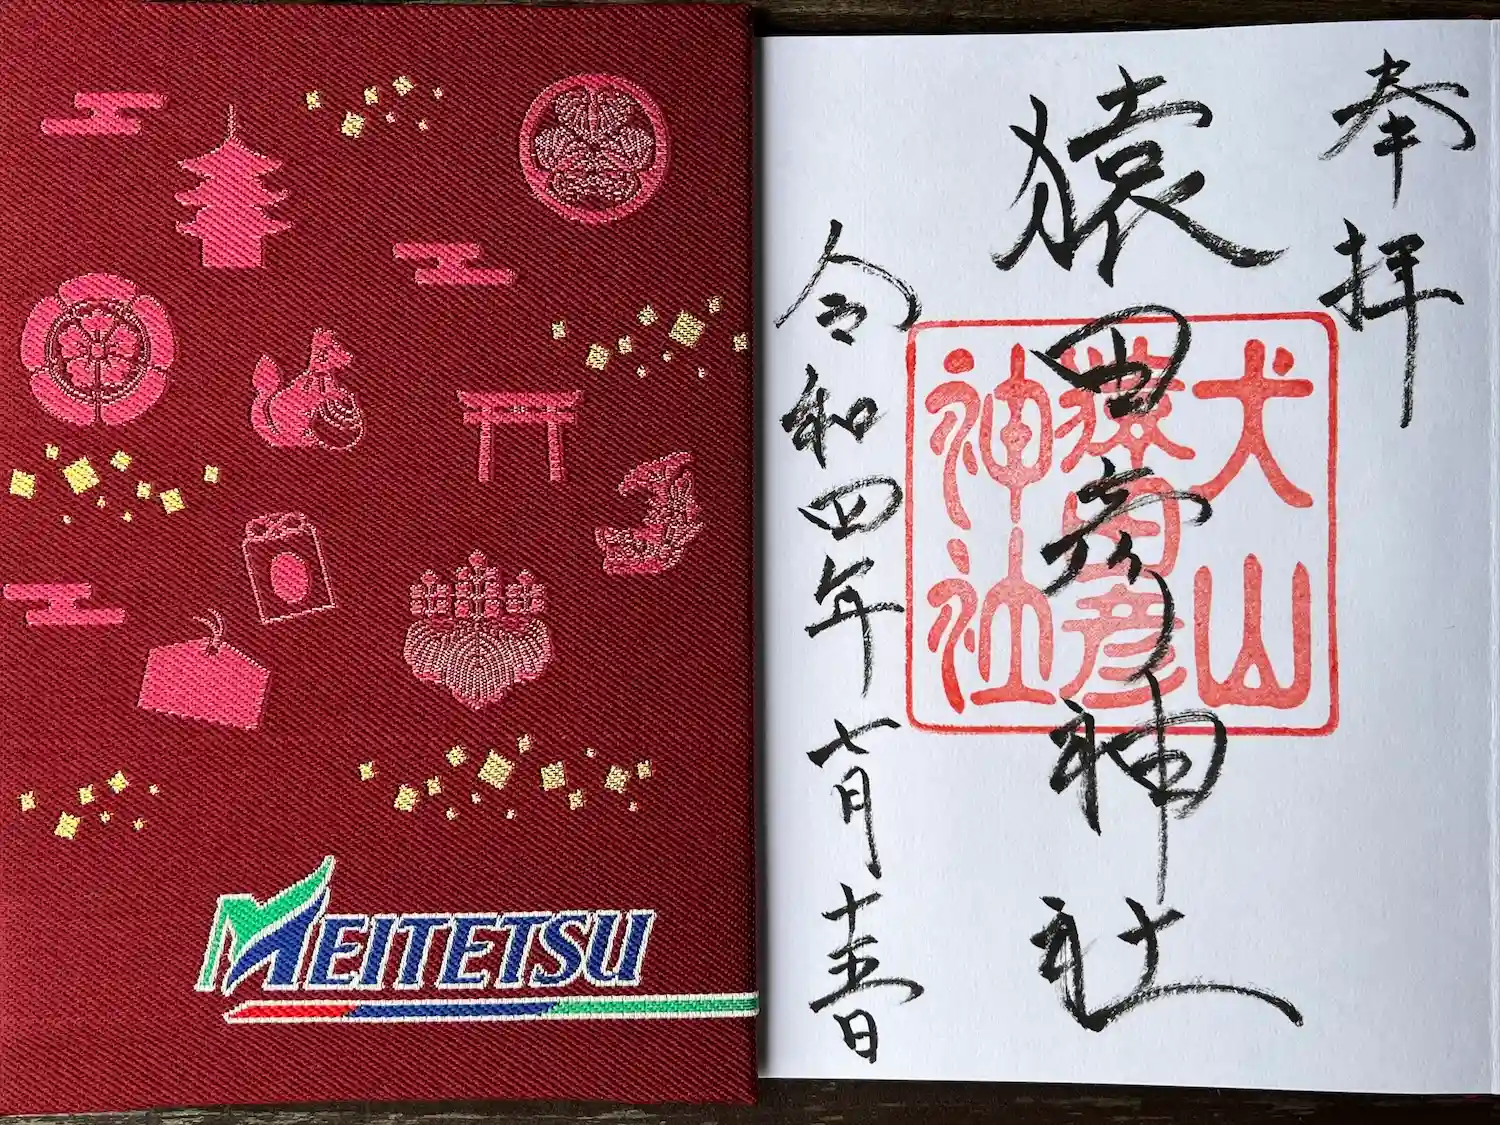 MEITETSU
奉拝
猿田彦神社
犬山
猿田彦
神社
令和四年七月十五日